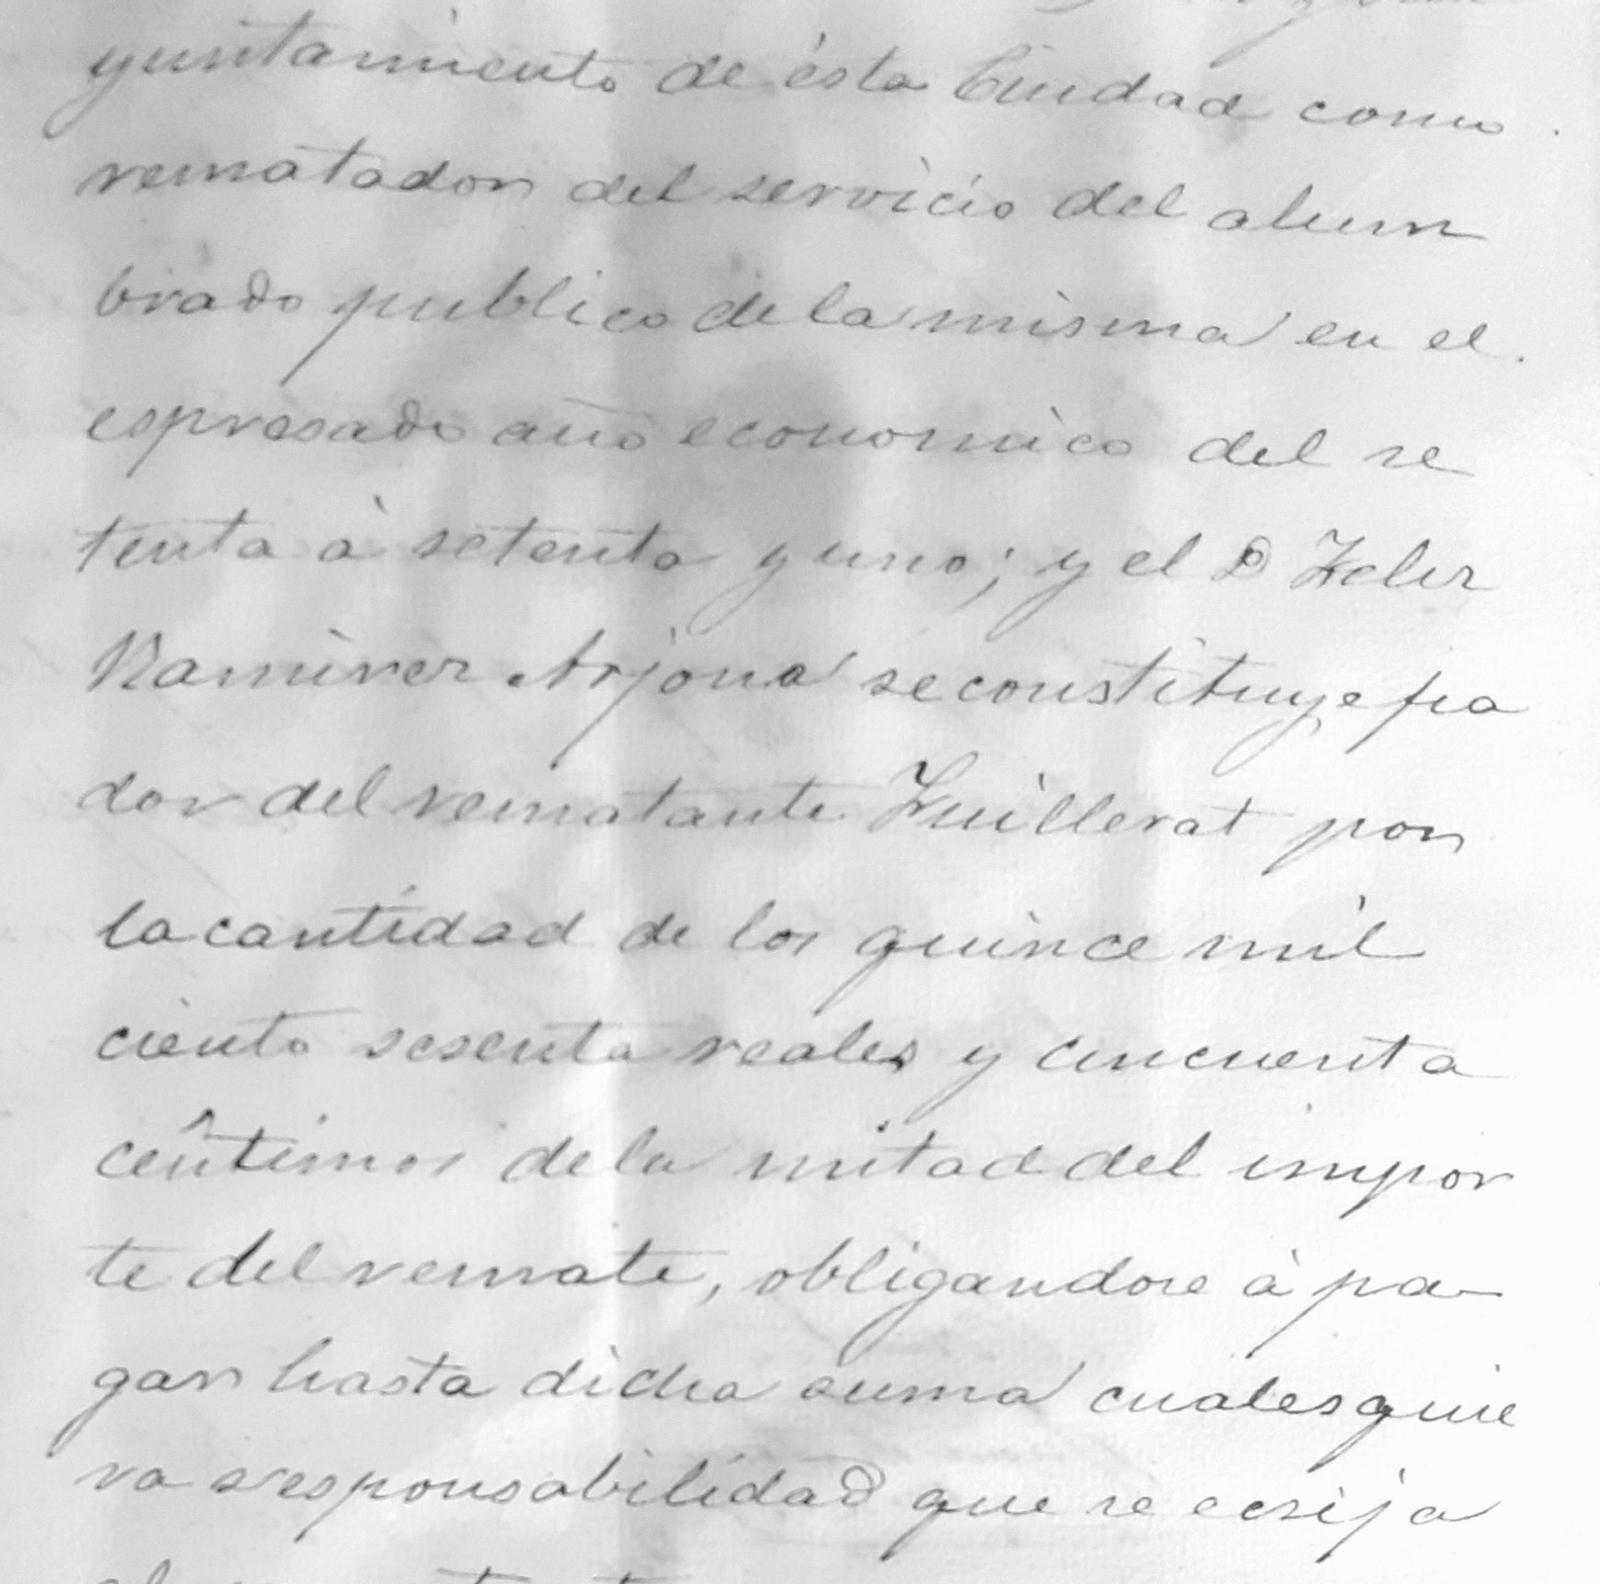 yuntamiento de ésta Ciudad como
rematador del servicio del alum
brado publico de la misma en el
espresado año economico del se
tenta à setenta y uno; y el D Felix
Ramirez Arjona se constituye fia
dor del rematante Fuillerat por
la cantidad de los quince mil
ciento sesenta reales y cincuenta
centimos de la mitad del impor
te del remate, obligandose à pa-
gar hasta dicha suma cualesquie
ra responsabilidad que se ecsija